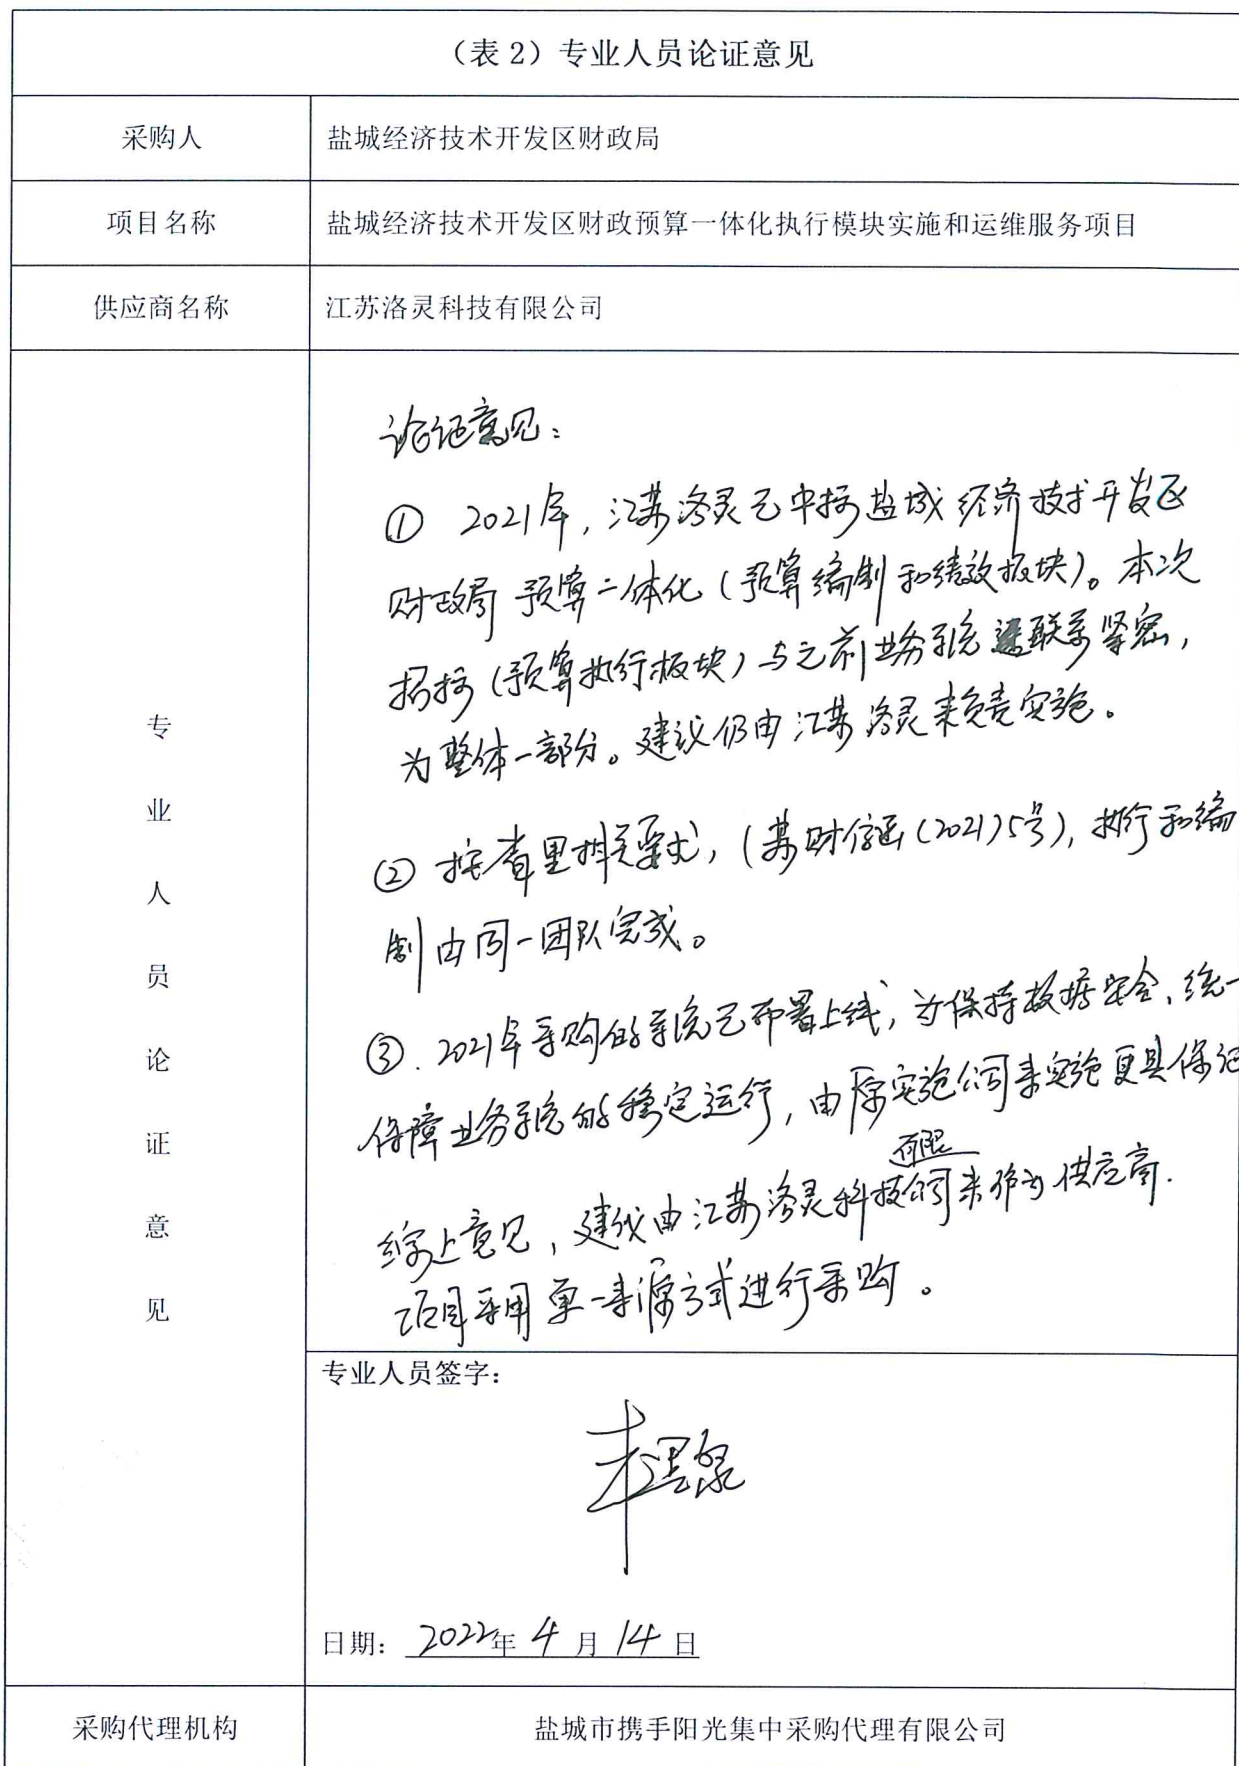 （表 2）专业人员论证意见
采购人
盐城经济技术开发区财政局
项目名称
盐城经济技术开发区财政预算一体化执行模块实施和运维服务项目
供应商名称
江苏洛灵科技有限公司
专业人员论证意见
论证意见：
① 2021年，江苏洛灵已中标盐城经济技术开发区
财政局预算一体化（预算编制和绩效板块）。本次
招标（预算执行板块）与之前业务系统联系紧密，
为整体一部分。建议仍由江苏洛灵来负责实施。
② 按省里相关要求，（苏财信函（2021）5号），执行和编
制由同一团队完成。
③. 2021年采购的系统已部署上线，为保持数据安全、统一
保障业务系统的稳定运行，由原实施公司来实施更具保证
综上意见，建议由江苏洛灵科技有限公司来作为供应商.
项目采用单一来源方式进行采购。
专业人员签字：
日期：2022年 4 月 14 日
采购代理机构
盐城市携手阳光集中采购代理有限公司